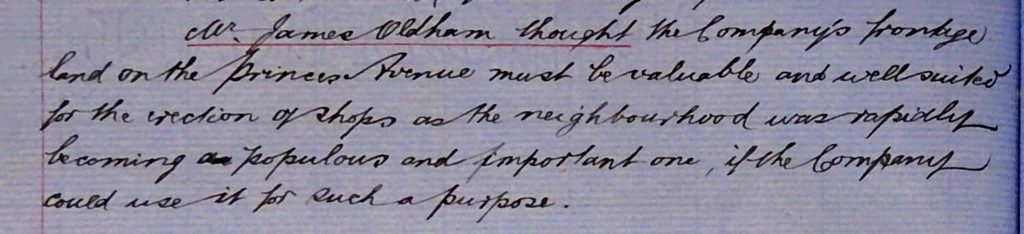 Mr. James Oldham thought the Company's frontage
land on the Princes Avenue must be valuable and well suited
for the erection of shops as the neighbourhood was rapidly
becoming a populous and important one, if the Company
could use it for such a purpose.